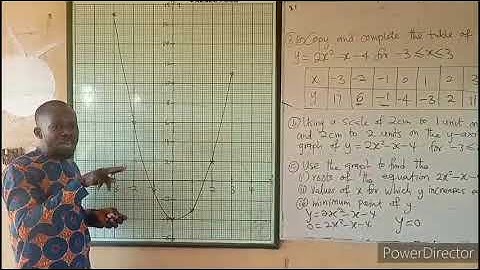 (a) Copy and complete the table of
y = 2x² - x - 4 for -3 ≤ x ≤ 3
x -3 -2 -1 0 1 2
y 17 6 -1 -4 -3 2 11
(b) Using a scale of 2cm to 1 unit on
and 2cm to 2 units on the y-axis
graph of y = 2x² - x - 4 for -3 ≤
(c) Use the graph to find the
(i) roots of the equation 2x² - x -
(ii) values of x for which y increases a
(iii) minimum point of y
y = 2x² - x - 4
0 = 2x² - x - 4 y = 0
PowerDirector